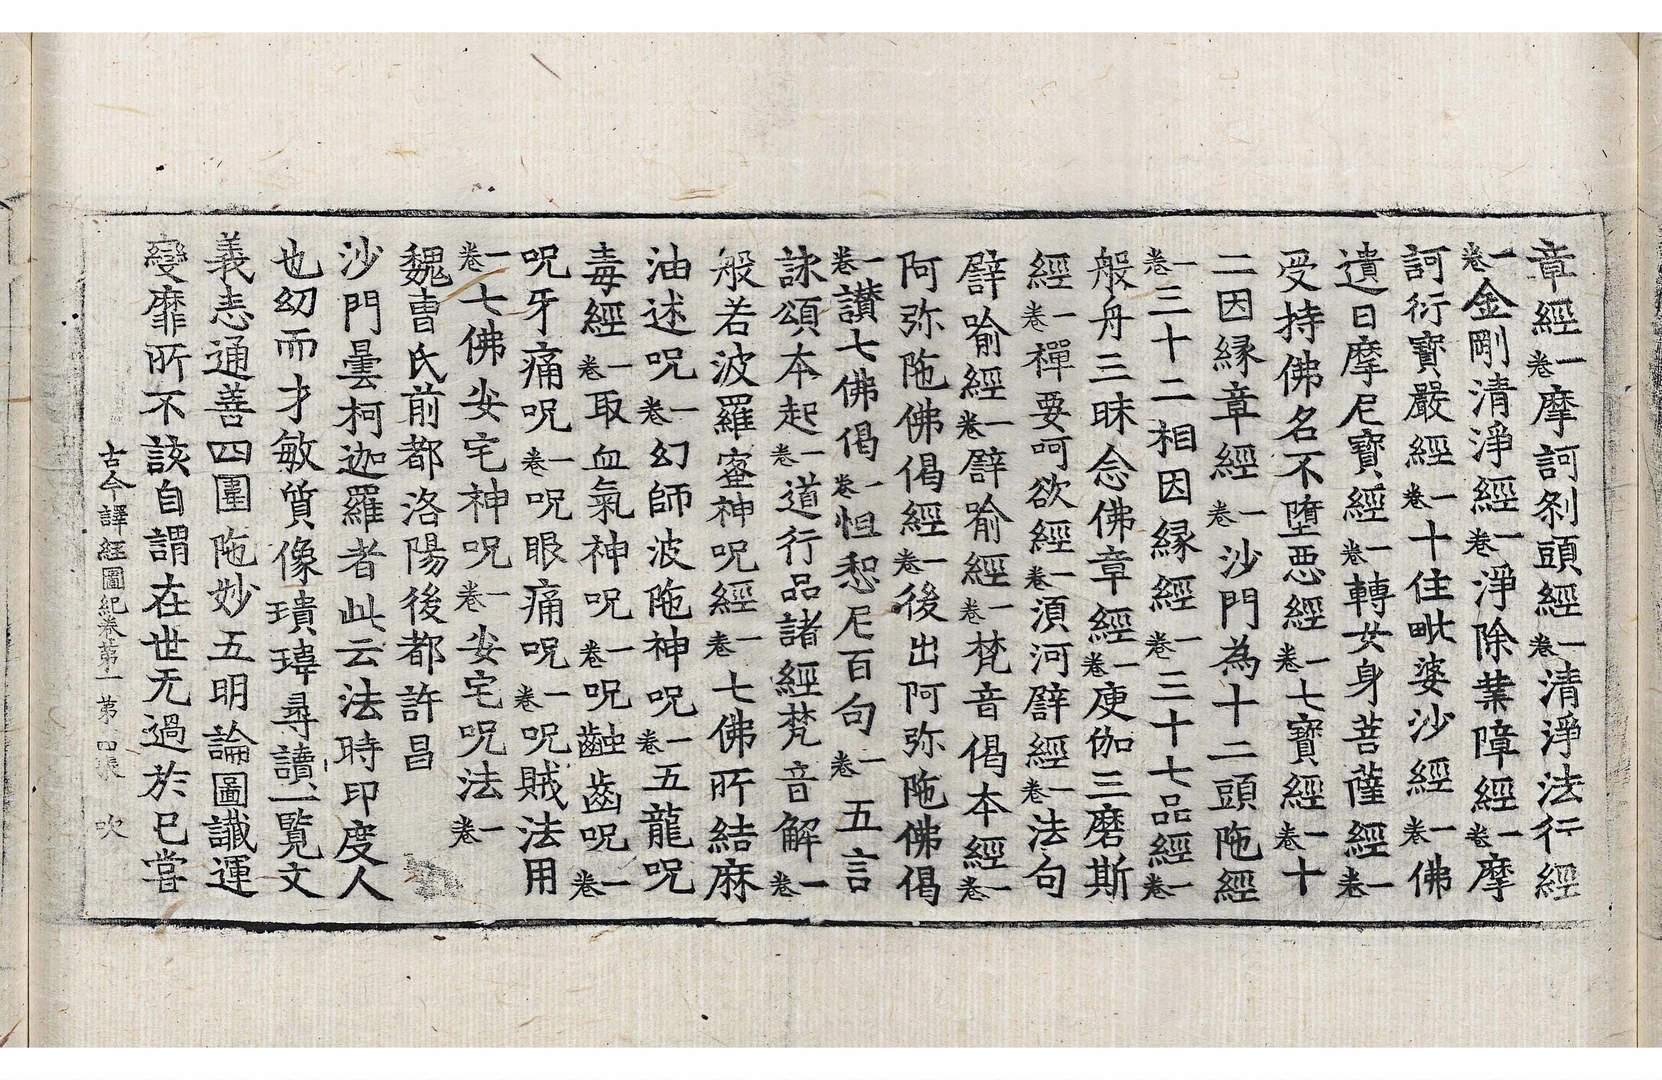 章經一卷摩訶刹頭經一卷清淨法行經
一卷金剛清淨經一卷淨除業障經一卷摩
訶衍寶嚴經一卷十住毗婆沙經一卷佛
遺日摩尼寶經一卷轉女身菩薩經一卷
受持佛名不墮惡經一卷七寶經一卷十
二因緣章經一卷沙門為十二頭陁經
一卷三十二相因緣經一卷三十七品經一卷
般舟三昧念佛章經一卷庾伽三磨斯
經一卷禪要呵欲經一卷湏河譬經一卷法句
譬喻經一卷譬喻經一卷梵音偈本經一卷
阿弥陁佛偈經一卷後出阿弥陁佛偈
一卷讃七佛偈一卷怛惒尼百句一卷五言
詠頌本起一卷道行品諸經梵音解一卷
般若波羅蜜神呪經一卷七佛所結麻
油述呪一卷幻師波陁神呪一卷五龍呪
毒經一卷取血氣神呪一卷呪齲齒呪一卷
呪牙痛呪一卷呪眼痛呪一卷呪賊法用
一卷七佛安宅神呪一卷安宅呪法一卷
魏曹氏前都洛陽後都許昌
沙門曇柯迦羅者此云法時印度人
也幼而才敏質像瓌瑋尋讀一覽文
義悉通善四圍陁妙五明論圖讖運
變靡所不該自謂在世无過於己嘗
古今譯經圖紀卷第一 第四張 吹